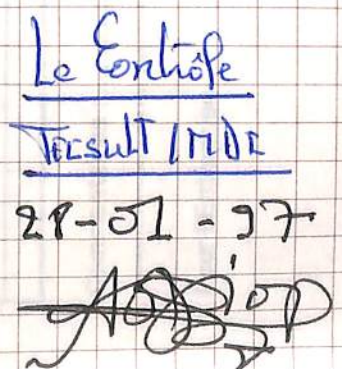 Le Contrôle
TECSULT / MDE
28-01-97